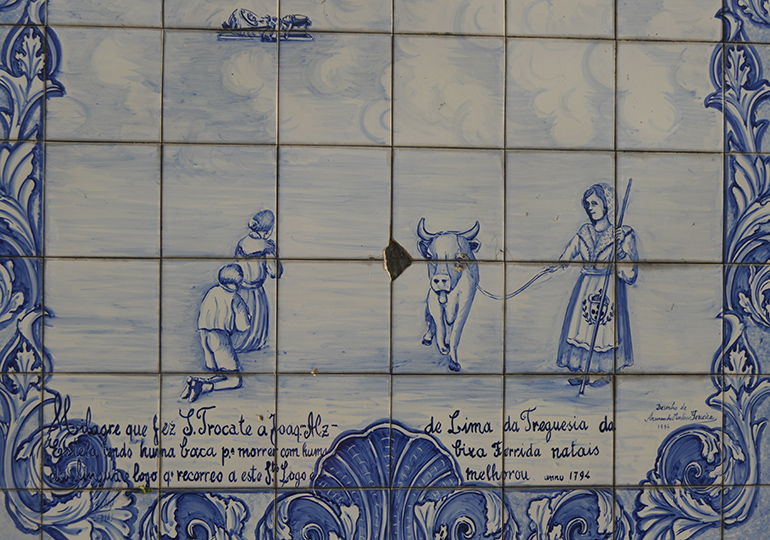 Milagre que fez S. Trocate a Joaq. Alz- de Lima da Treguesia da
Estrela endo huma baca pª morrer com huma bixa Ferrida natais
logo qº recorreo a este Sto Logo melhorou anno 1794
Desenho de
Ferreira